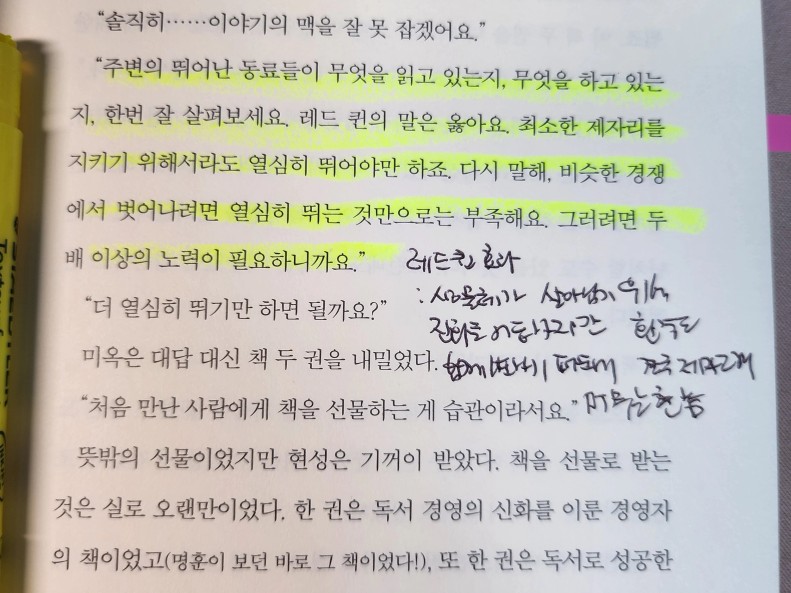 “솔직히……이야기의 맥을 잘 못 잡겠어요.”
“주변의 뛰어난 동료들이 무엇을 읽고 있는지, 무엇을 하고 있는
지, 한번 잘 살펴보세요. 레드 퀸의 말은 옳아요. 최소한 제자리를
지키기 위해서라도 열심히 뛰어야만 하죠. 다시 말해, 비슷한 경쟁
에서 벗어나려면 열심히 뛰는 것만으로는 부족해요. 그러려면 두
배 이상의 노력이 필요하니까요.”
레드퀸 효과
“더 열심히 뛰기만 하면 될까요?”
: 살아남기 위해
미옥은 대답 대신 책 두 권을 내밀었다.
진화를 환경도
함께 때문에 결국
“처음 만난 사람에게 책을 선물하는 게 습관이라서요.”
뜻밖의 선물이었지만 현성은 기꺼이 받았다. 책을 선물로 받는
것은 실로 오랜만이었다. 한 권은 독서 경영의 신화를 이룬 경영자
의 책이었고(명훈이 보던 바로 그 책이었다!), 또 한 권은 독서로 성공한